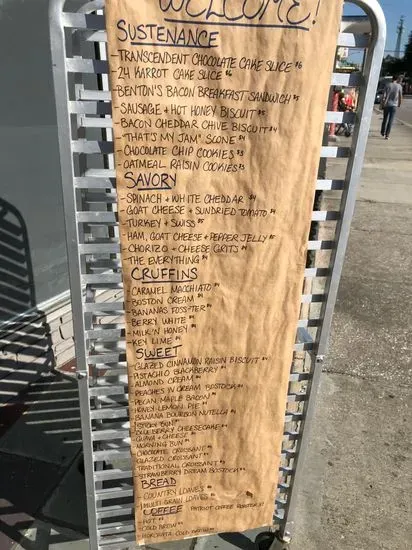 WELCOME!
SUSTENANCE
- TRANSCENDENT CHOCOLATE CAKE SLICE $6
- 24 KARROT CAKE SLICE $6
- BENTON'S BACON BREAKFAST SANDWICH $5
- SAUSAGE + HOT HONEY BISCUIT $5
- BACON CHEDDAR CHIVE BISCUIT $4
- "THAT'S MY JAM" SCONE $4
- CHOCOLATE CHIP COOKIES $3
- OATMEAL RAISIN COOKIES $3
SAVORY
- SPINACH + WHITE CHEDDAR $4
- GOAT CHEESE + SUNDRIED TOMATO $4
- TURKEY + SWISS $5
- HAM, GOAT CHEESE + PEPPER JELLY $5
- CHORIZO + CHEESE GRITS $4
- THE EVERYTHING $4
CRUFFINS
- CARAMEL MACCHIATO $4
- BOSTON CREAM $4
- BANANAS FOSS-TER $4
- BERRY WHITE $4
- MILK 'N HONEY $4
- KEY LIME $4
SWEET
- GLAZED CINNAMON RAISIN BISCUIT $4
- PISTACHIO BLACKBERRY $4
- ALMOND CREAM $4
- PEACHES 'N CREAM BOSTOCK $4
- PECAN MAPLE BACON $4
- HONEY LEMON PIE $4
- BANANA BOURBON NUTELLA $4
- "STICKY" BUN $4
- BLUEBERRY CHEESECAKE $4
- GUAVA + CHEESE $4
- MORNING BUN $4
- CHOCOLATE CROISSANT $4
- GLAZED CROISSANT $4
- TRADITIONAL CROISSANT $3
- STRAWBERRY DREAM BOSTOCK $4
BREAD
- COUNTRY LOAVES
- MULTI GRAIN LOAVES
COFFEE PATRIOT COFFEE ROASTER
- HOT
- COLD BREW
- HORCHATA COLD BREW